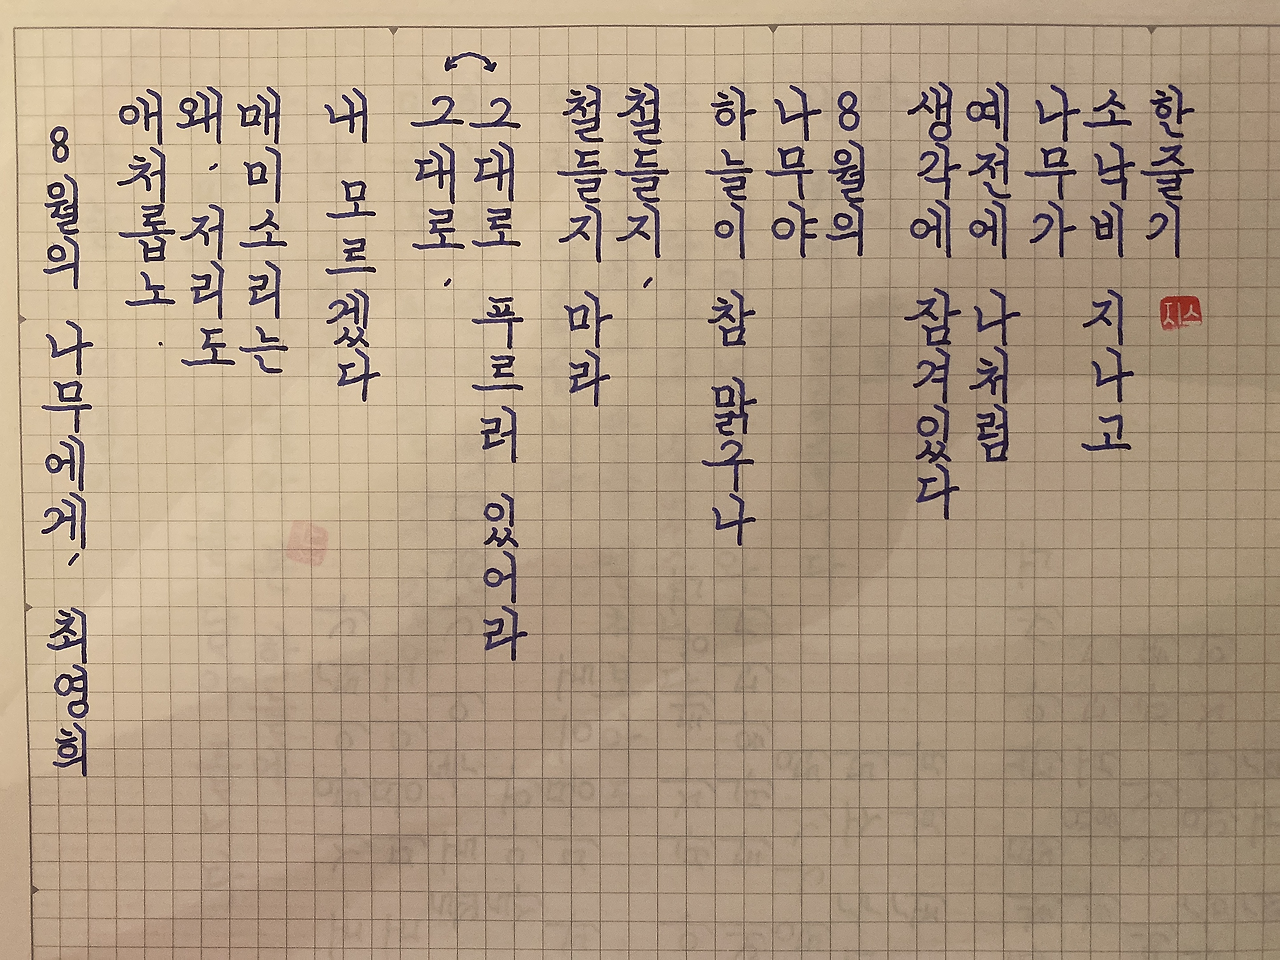 한줄기
소낙비 지나고
나무가
예전에 나처럼
생각에 잠겨있다
8월의
나무야
하늘이 참 맑구나
철들지,
철들지 마라
그대로 푸르러 있어라
그대로,
내 모르겠다
매미소리는
왜, 저리도
애처롭노.
8월의 나무에게, 최영희